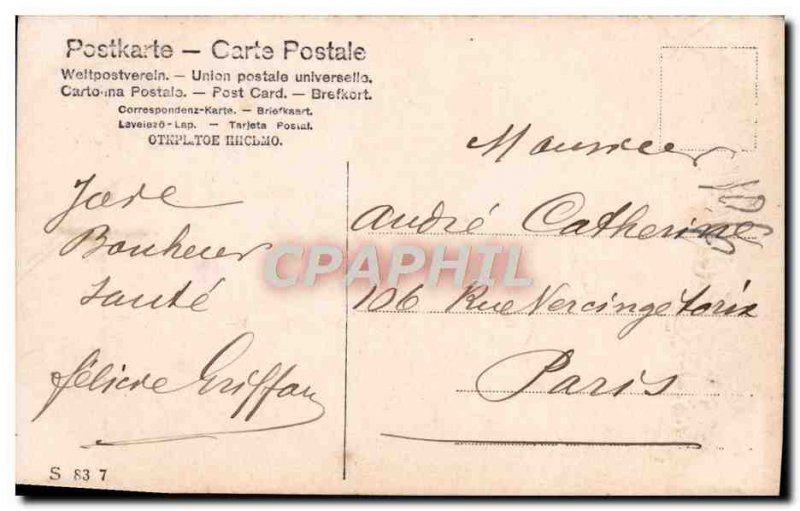 Postkarte — Carte Postale
Weltpostverein. — Union postale universelle.
Cartolina Postale. — Post Card. — Brefkort.
Correspondenz-Karte. — Briefkaart.
Levelező-Lap. — Tarjeta Postal.
ОТКРЫТОЕ ПИСЬМО.
Joie
Bonheur
Santé
Félicie Griffon
S 83 7
Monsieur
André Catherine
106 Rue Vercingétorix
Paris
CPAPHIL